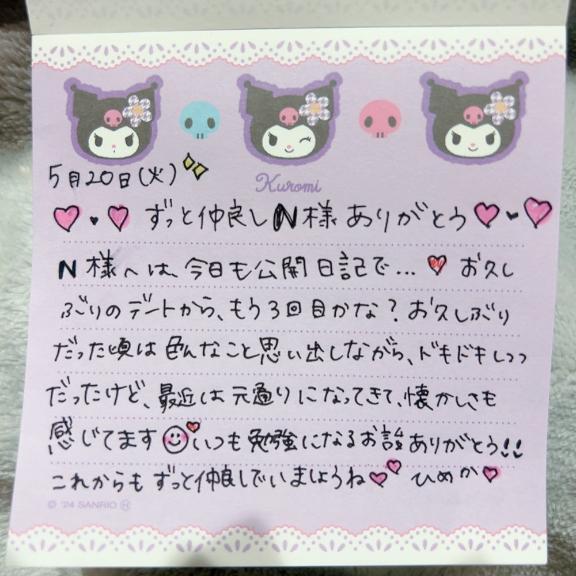 5月20日(火)
Kuromi
ずっと仲良しN様ありがとう
N様へは、今日も公開日記で... お久し
ぶりのデートから、もう3回目かな?お久しぶり
だった頃は色んなこと思い出しながら、ドキドキしっつ
だったけど、最近は元通りになってきて、懐かしさも
感じてます いつも勉強になるお話ありがとう!!
これからもずっと仲良しでいましょうね ひめか
© '24 SANRIO Ⓗ